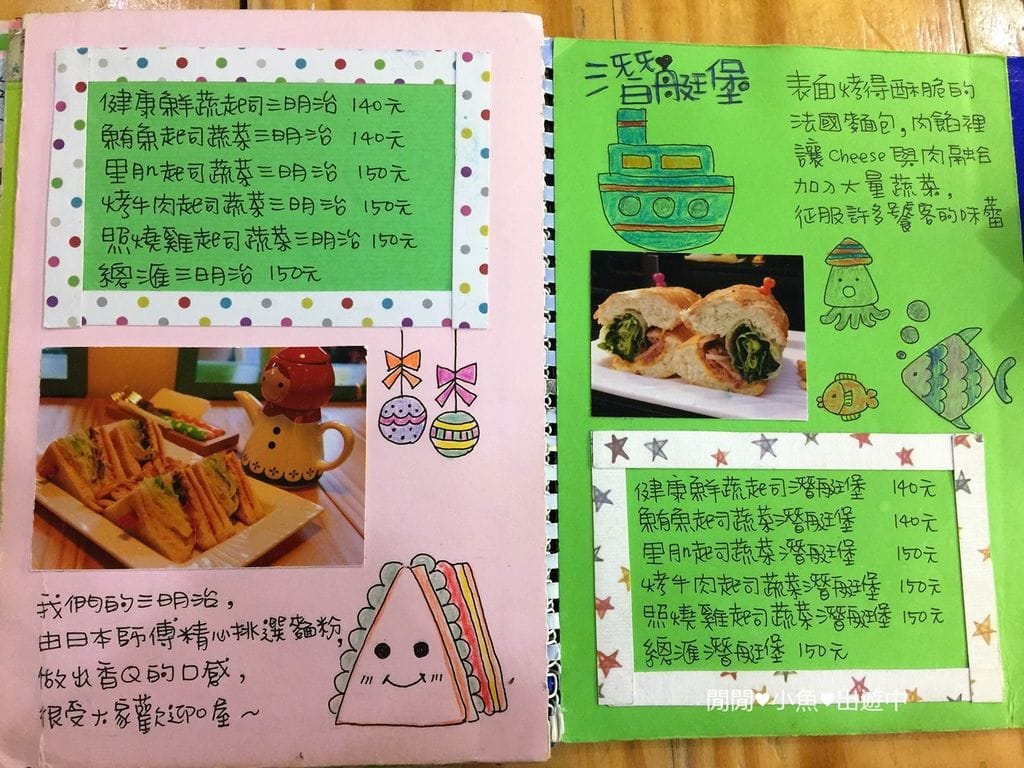 健康鮮蔬起司三明治 140元
鮪魚起司蔬菜三明治 140元
里肌起司蔬菜三明治 150元
烤牛肉起司蔬菜三明治 150元
照燒雞起司蔬菜三明治 150元
總滙三明治 150元
我們的三明治,
由日本師傅精心挑選麵粉,
做出香Q的口感,
很受大家歡迎口屋~
潛艇堡
表面烤得酥脆的
法國麵包,肉餡裡
讓Cheese與肉融合
加入大量蔬菜,
征服許多饕客的味蕾
健康鮮蔬起司潛艇堡 140元
鮪魚起司蔬菜潛艇堡 140元
里肌起司蔬菜潛艇堡 150元
烤牛肉起司蔬菜潛艇堡 150元
照燒雞起司蔬菜潛艇堡 150元
總滙潛艇堡 150元
閒閒♥小魚♥出遊中